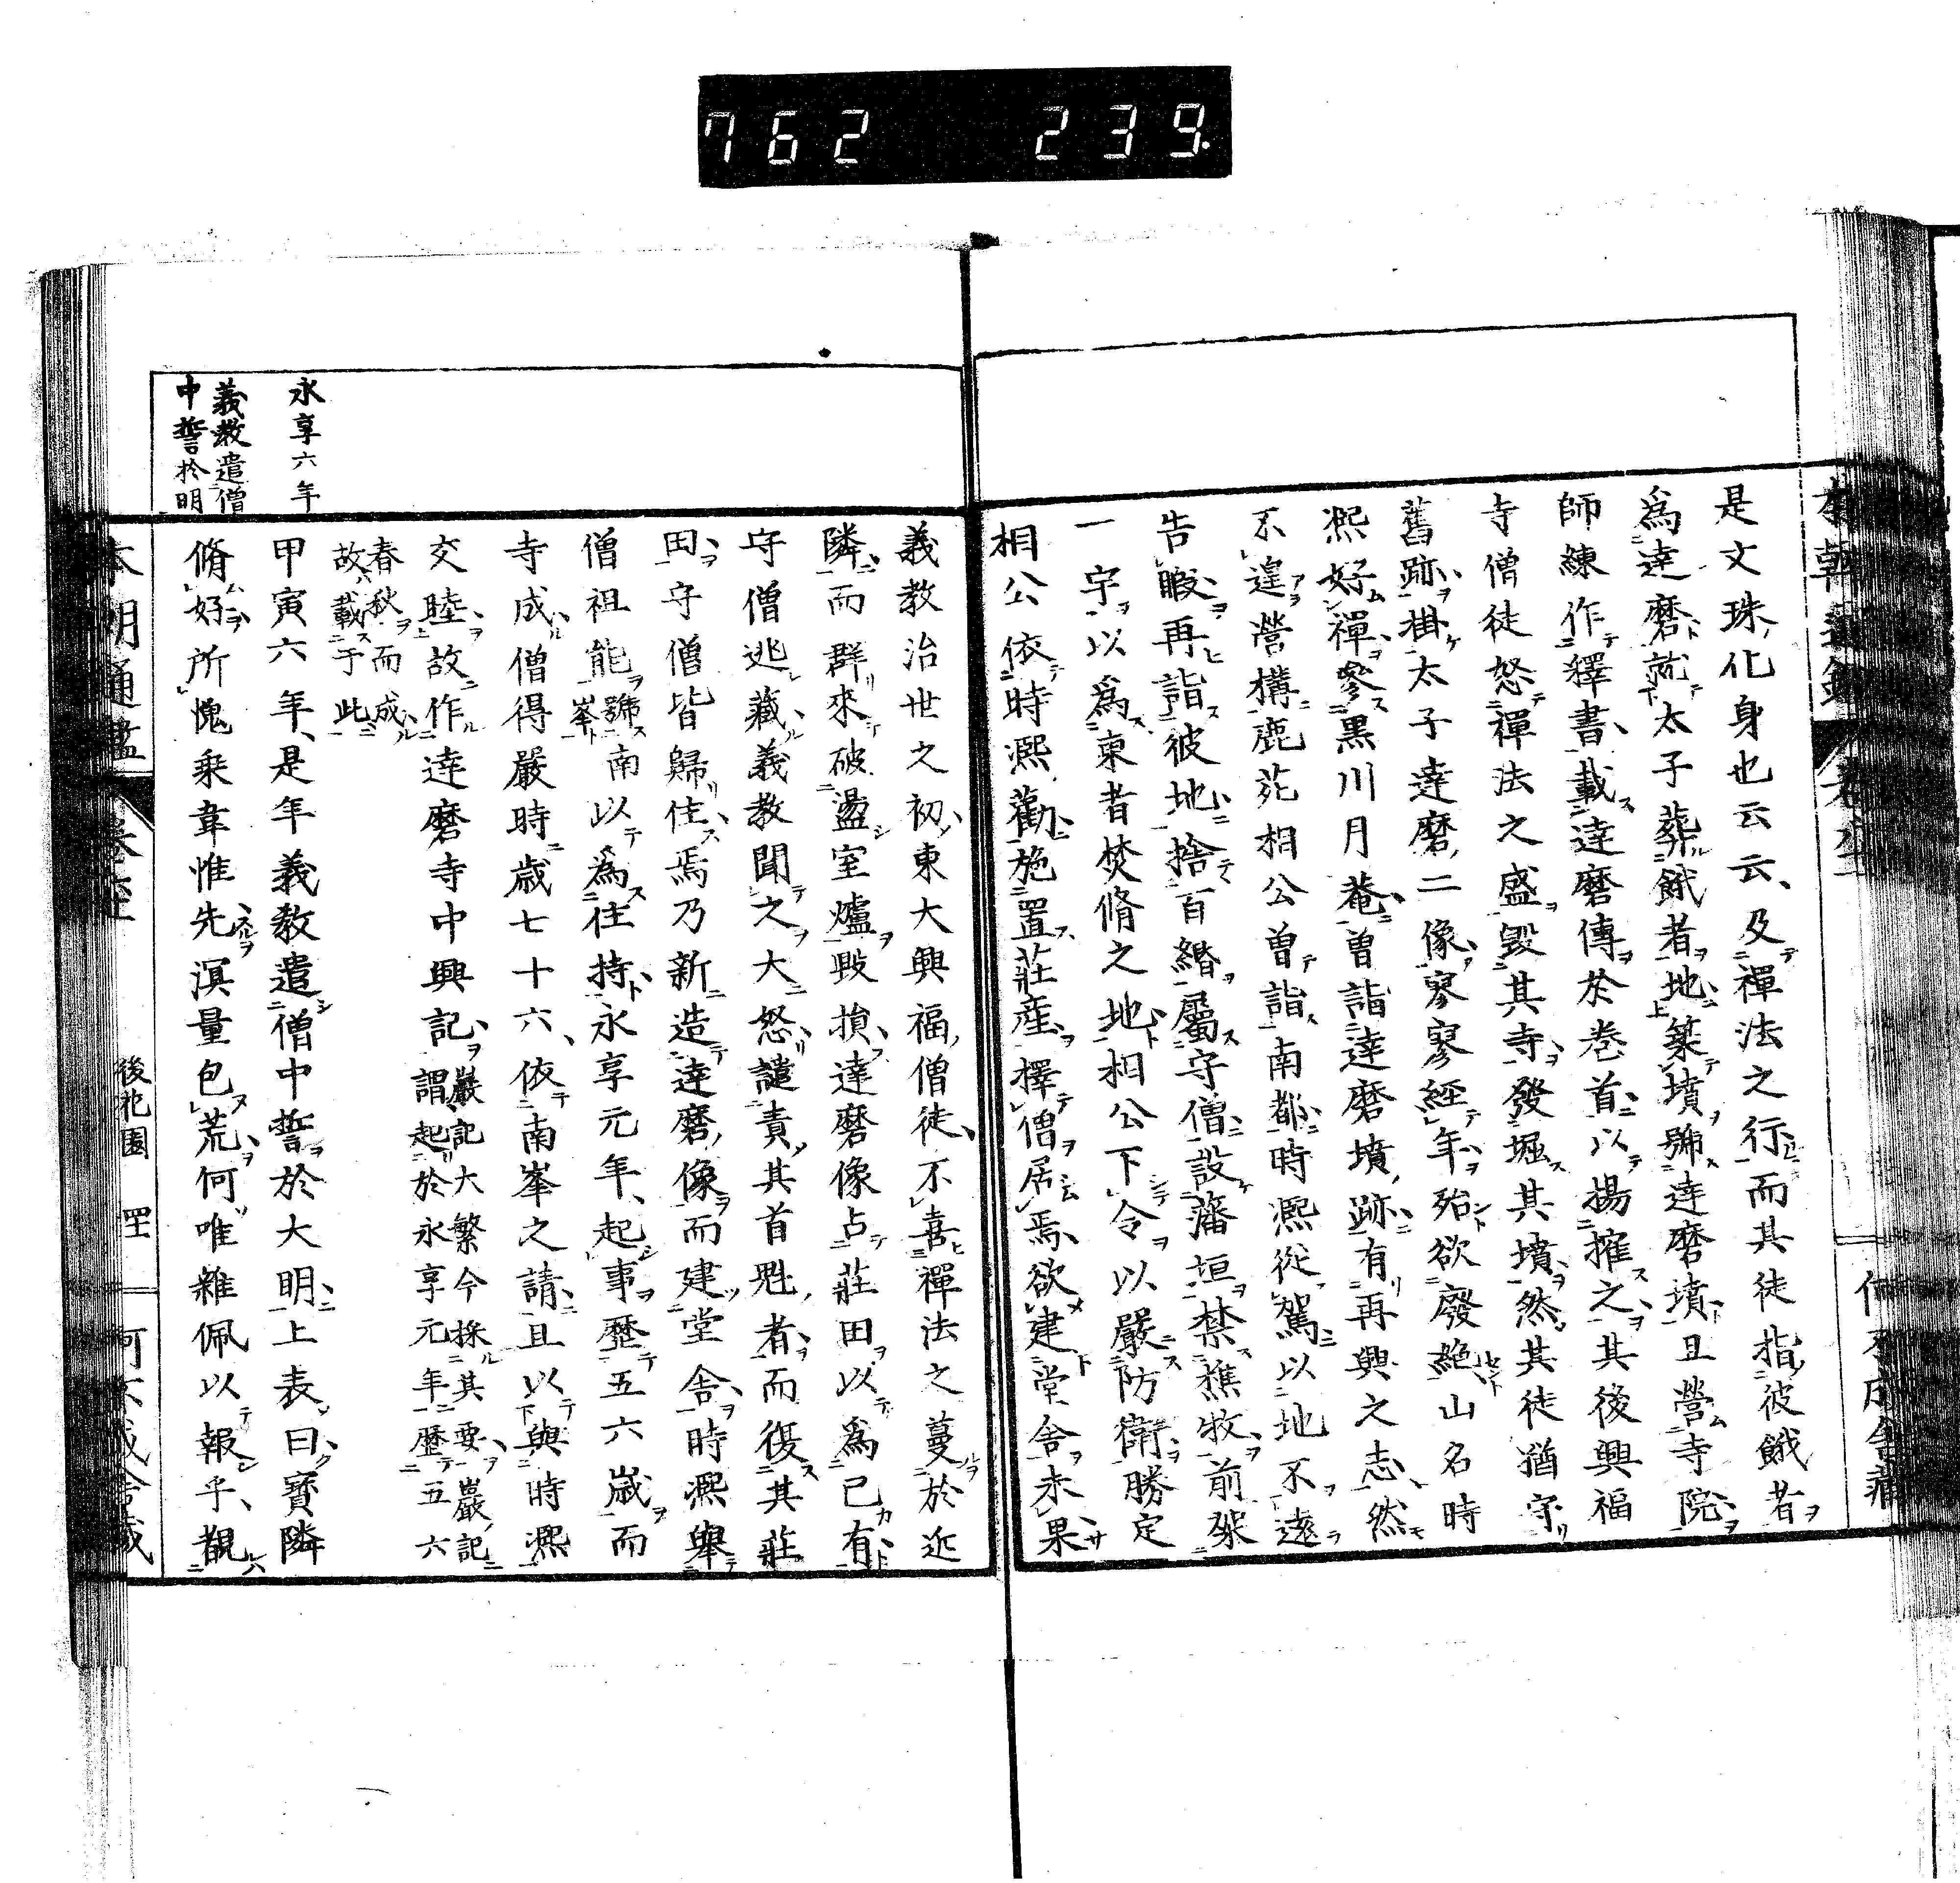 762 239.
是文珠化身也云云及禪法之行而其徒指彼餓者
爲達磨就太子葬餓者地築墳號達磨墳且營寺院
師練作釋書載達磨傳於卷首以揚搉之其後興福
寺僧徒怒禪法之盛毀其寺發堀其墳然其徒猶守
舊跡掛太子達磨二像寥寥經年殆欲廢絶山名時
熙好禪參黒川月菴曽詣達磨墳跡有再興之志然
不遑營構鹿苑相公曽詣南都時熙從駕以地不遠
告暇再詣彼地捨百緡屬守僧設藩垣禁樵牧前架
一宇以爲東者焚脩之地相公下令以嚴防衛勝定
相公依時熙勸施置莊産擇僧居焉欲建堂舎未果
永享六年
義教遣僧
中誓於明
義教治世之初東大興福僧徒不喜禪法之蔓於近
隣而群來破盪室爐毀損達磨像占莊田以爲己有
守僧逃藏義教聞之大怒譴責其首魁者而復其莊
田守僧皆歸住焉乃新造達磨像而建堂舎時熙舉
僧祖能號南峯以爲住持永享元年起事歴五六歳而
寺成僧得嚴時歳七十六依南峯之請且以與時熙
交睦故作達磨寺中興記嚴記大繁今採其要嚴記
謂起於永享元年歴五六
春秋而成
故載于此
甲寅六年是年義教遣僧中誓於大明上表曰寳隣
脩好所愧乗韋惟先溟量包荒何唯雜佩以報乎覩
本朝通鑑 卷 後祀園 罡 何不成舎藏